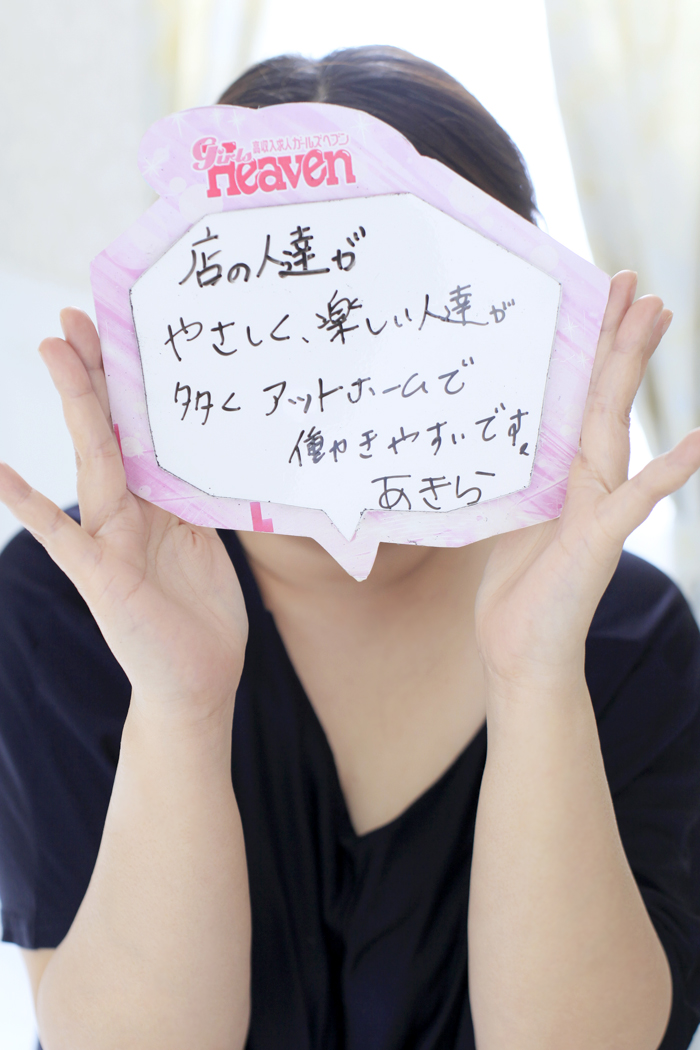 高収入求人ガールズヘブン
Girls
Heaven
店の人達が
やさしく、楽しい人達が
多く アットホームで
働やきやすいです。
あきら